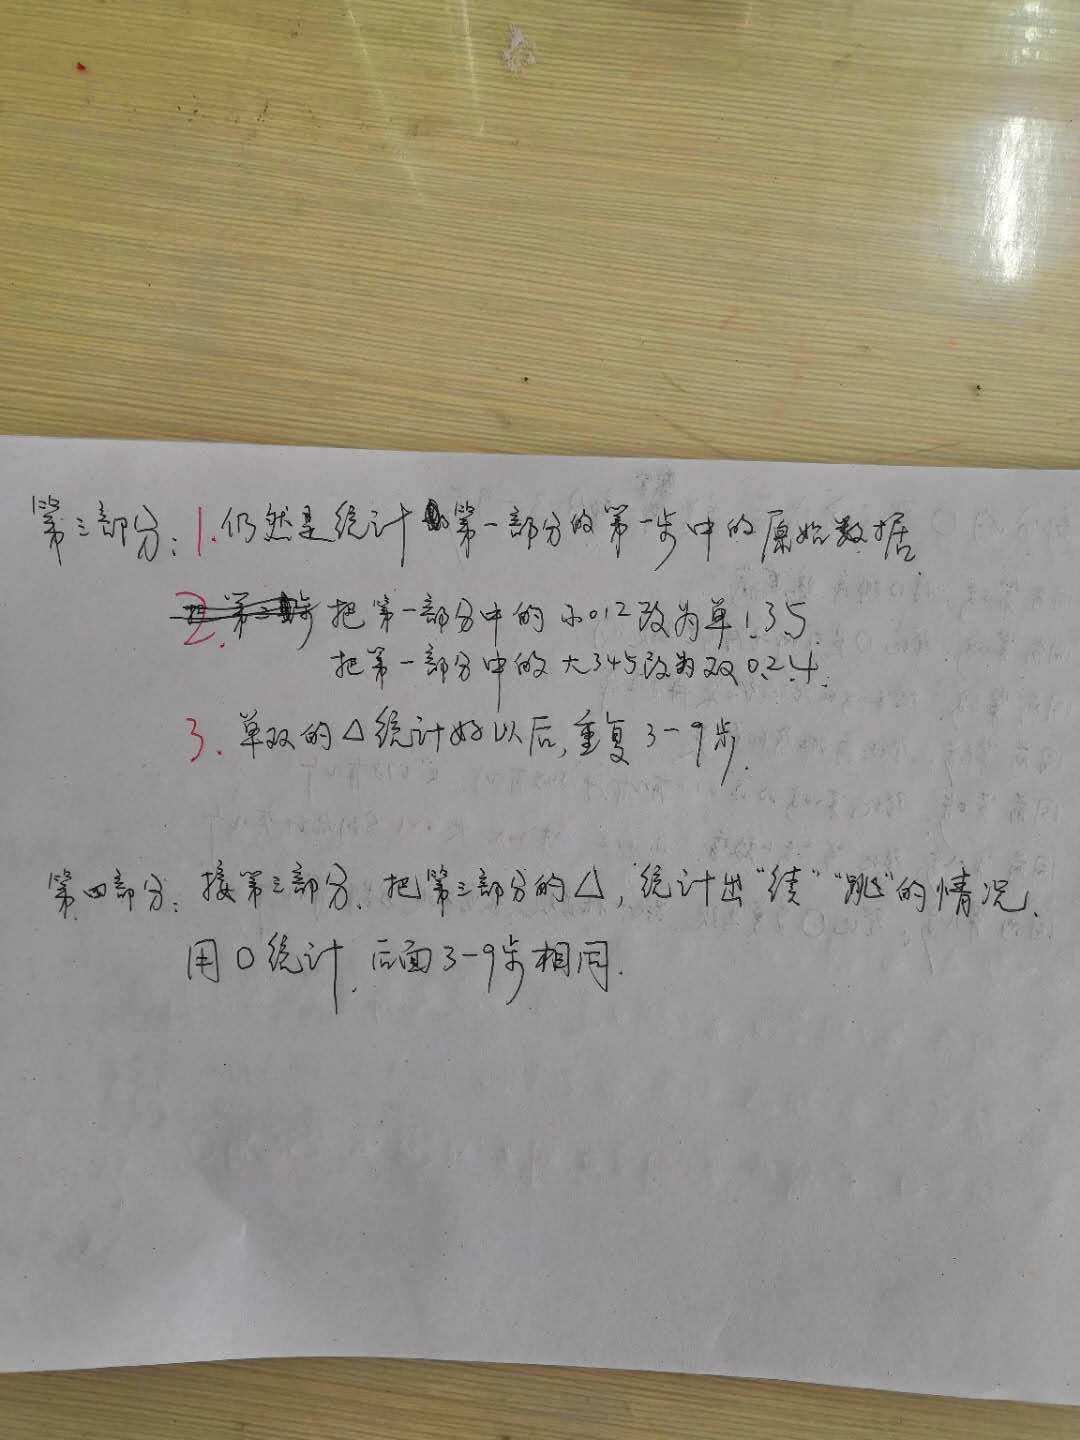 第三部分：1.仍然是统计第一部分的第一步中的原始数据.
2. 把第一部分中的小012改为单1.3.5.
把第一部分中的大345改为双0.2.4.
3. 单双的△统计好以后,重复3-9步.
第四部分：接第三部分.把第三部分的△,统计出"续""跳"的情况.
用O统计.后面3-9步相同.